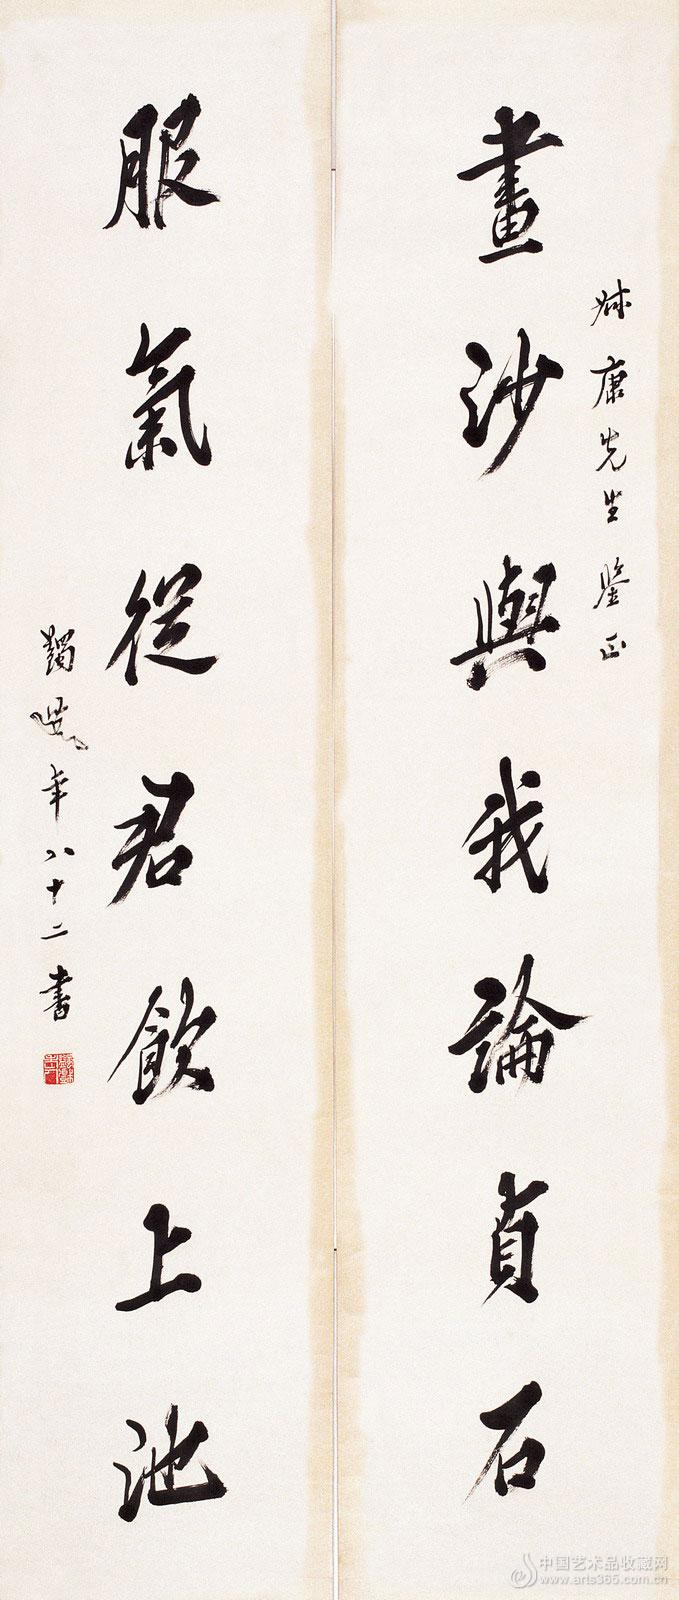 叔康先生鉴正
畫沙與我論貞石
服氣從君飲上池
蠲叟年八十二書
中国艺术品收藏网
www.arts365.com.cn